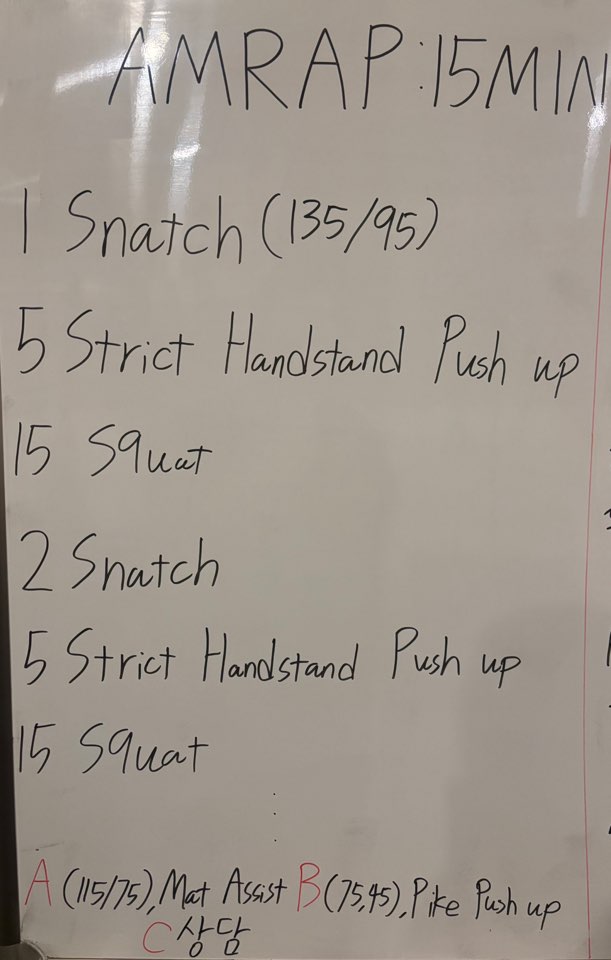 AMRAP:15MIN
1 Snatch (135/95)
5 Strict Handstand Push up
15 Squat
2 Snatch
5 Strict Handstand Push up
15 Squat
⋮
A (115/75), Mat Assist B (75,45), Pike Push up
C 상담